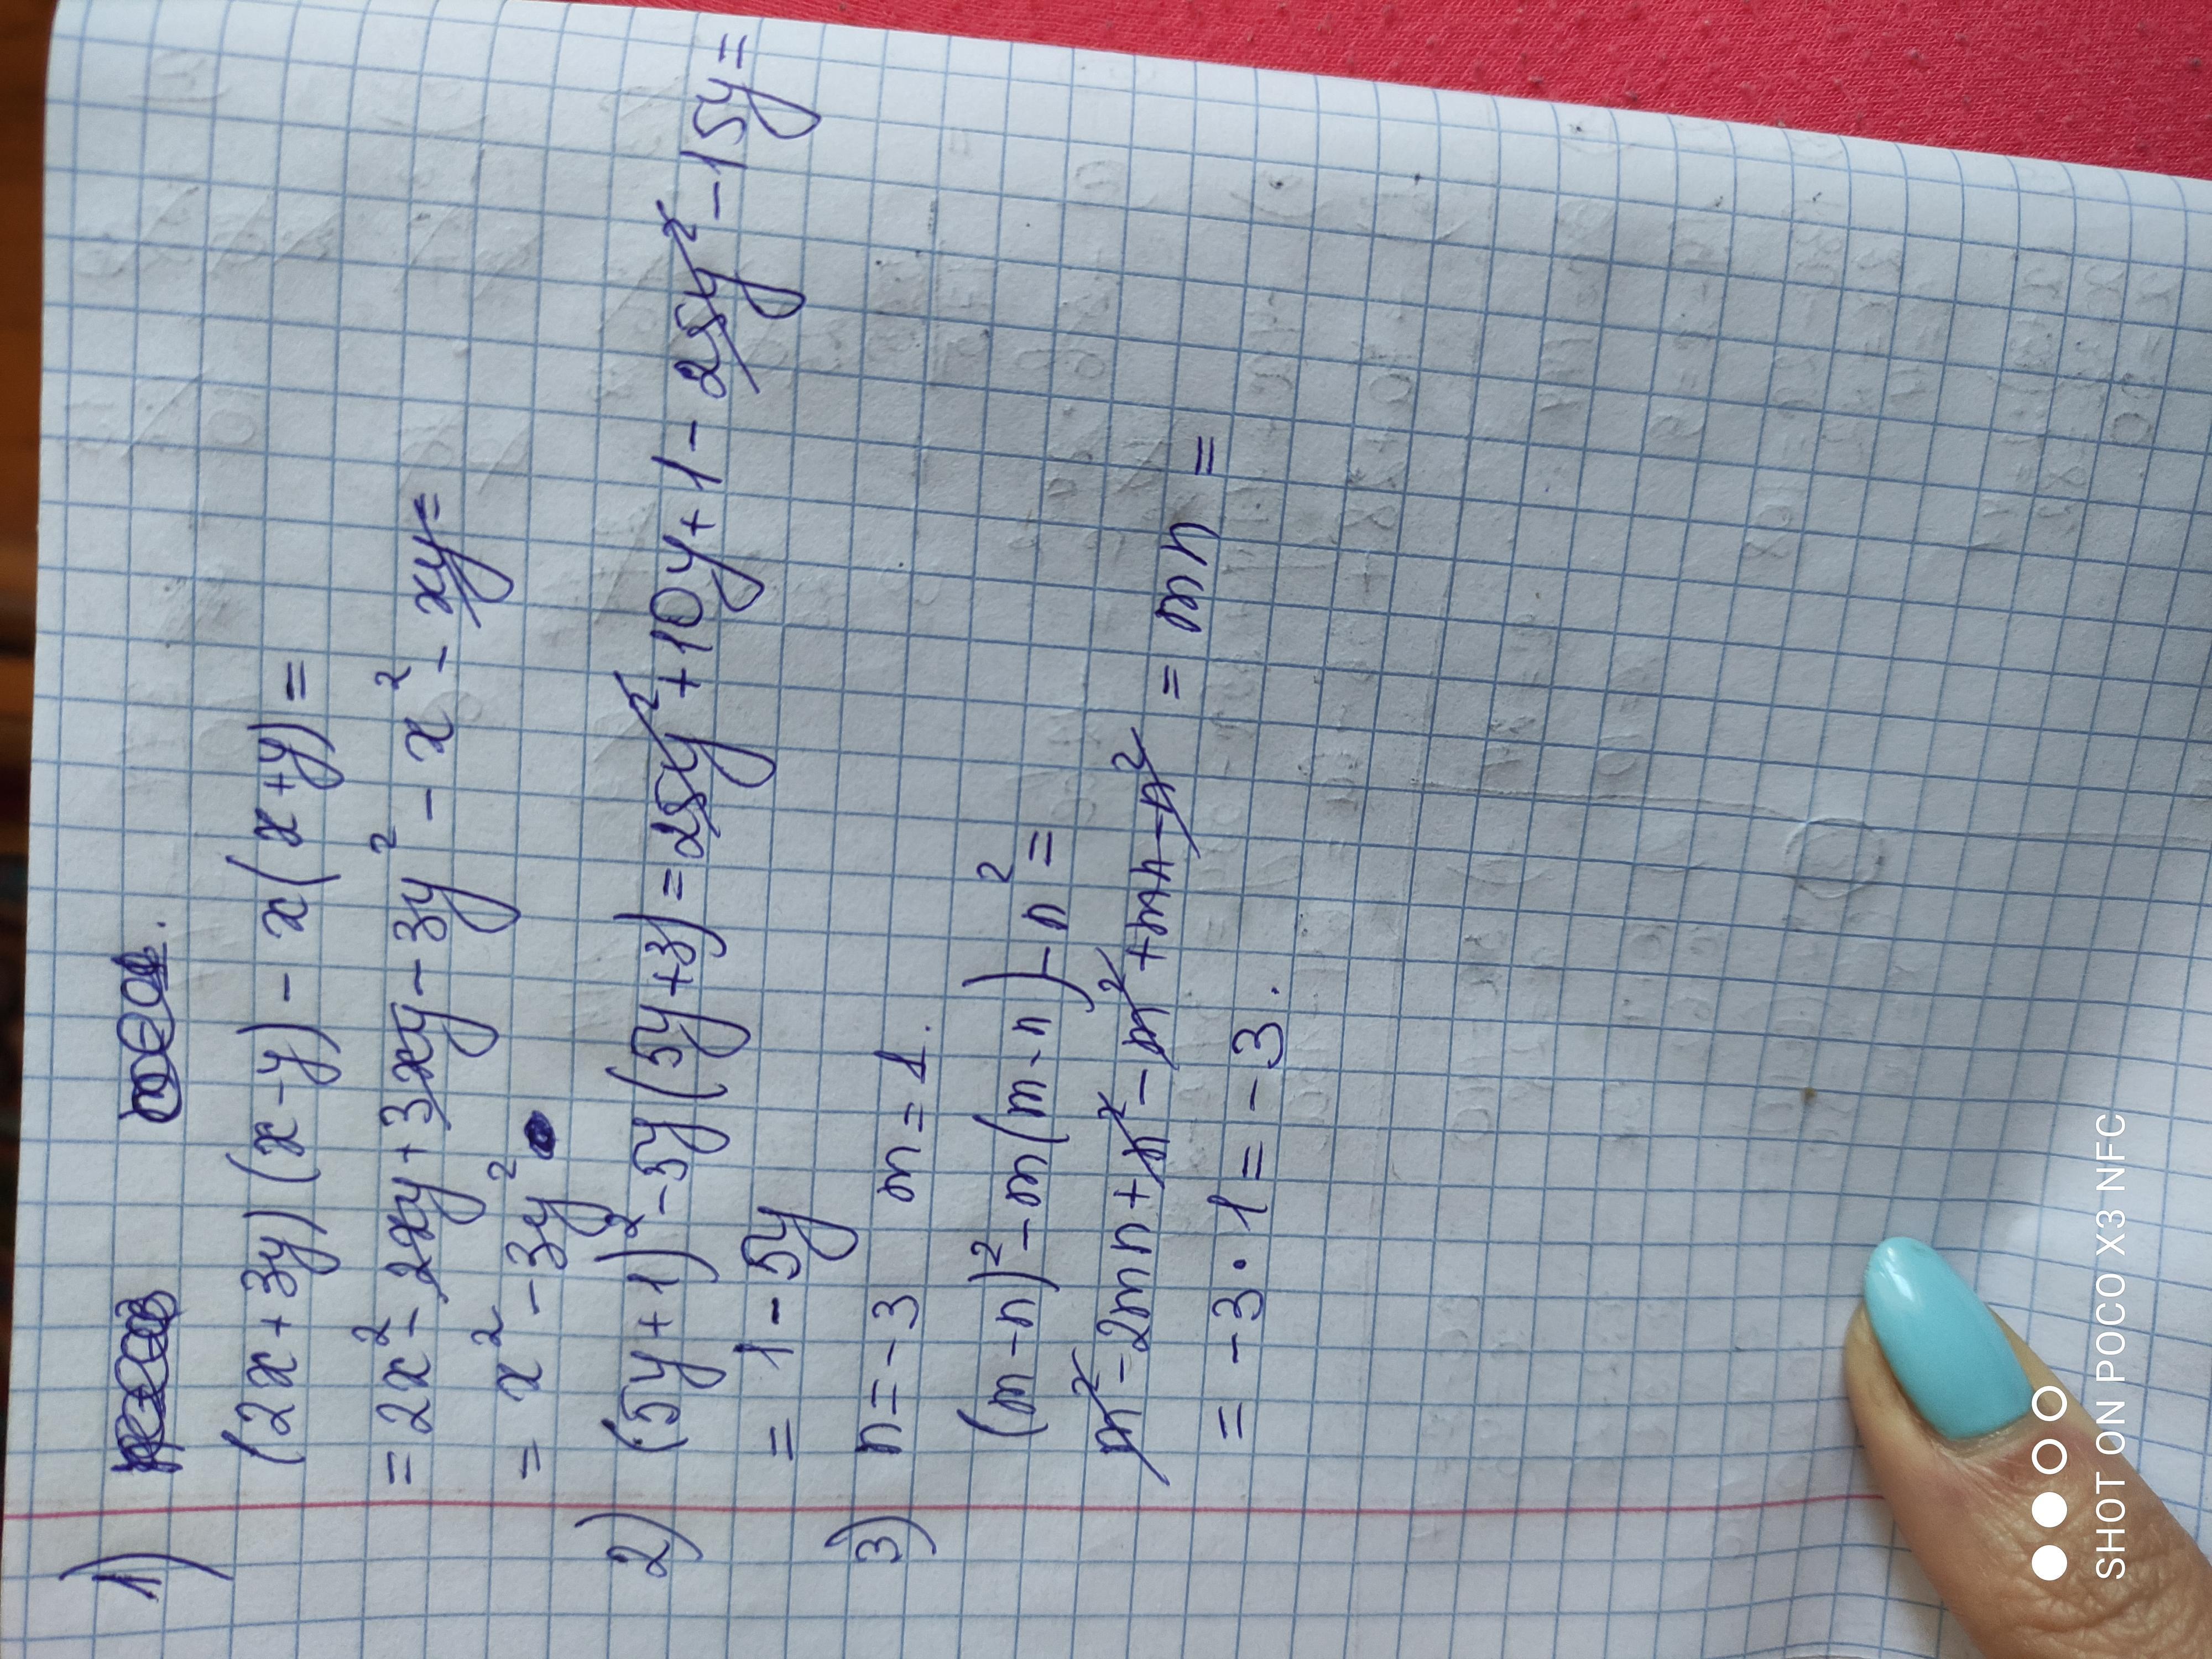 1)
(2x+3y)(x-y) - x(x+y) =
= 2x² - 2xy + 3xy - 3y² - x² - xy =
= x² - 3y²
2) (5y+1)² - 5y(5y+3) = 25y² + 10y + 1 - 25y² - 15y =
= 1 - 5y
3) n = -3 m = 1.
(m-n)² - m(m-n) - n² =
m² - 2mn + n² - m² + mn - n² = mn =
= -3 · 1 = -3.
SHOT ON POCO X3 NFC